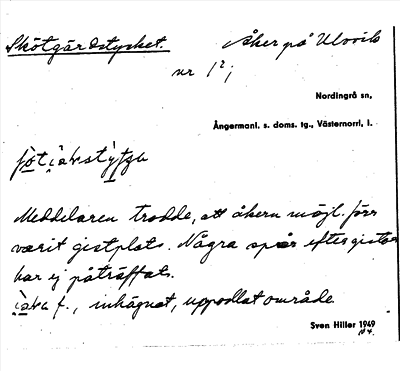 Skötgärdstycket. Åker på Ulvvik
nr 1²;
Nordingrå sn,
Ångermanl. s. doms. tg., Västernorrl, l.
Meddelaren trodde, att åkern möjl. förr
varit gistplats. Några spår efter gistor
har ej påträffats.
f., inhägnat, uppodlat område
Sven Hiller 1949